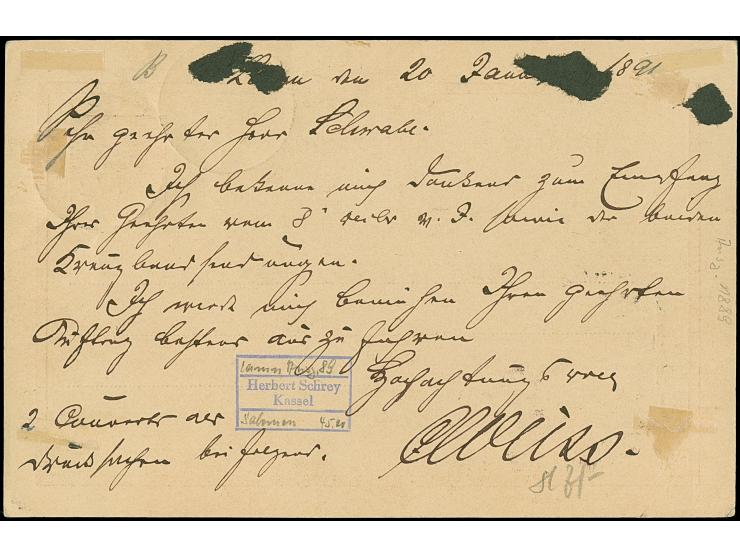 den 20 Janu 1891
Sehr geehrter Herr Schwabe.
Ich bekenne mich dankend zum Empfang
Ihres Geehrten vom 8 v. J. sowie der beiden
Kreuzbandsendungen.
Ich werde mich bemühen Ihren geehrten
Auftrag bestens auszuführen
Hochachtungsvoll
Weiss.
2 Couverts als
Drucksachen bei folgend.
Ausg. 89
Herbert Schrey
Kassel
45.
Ausg. 1889
B